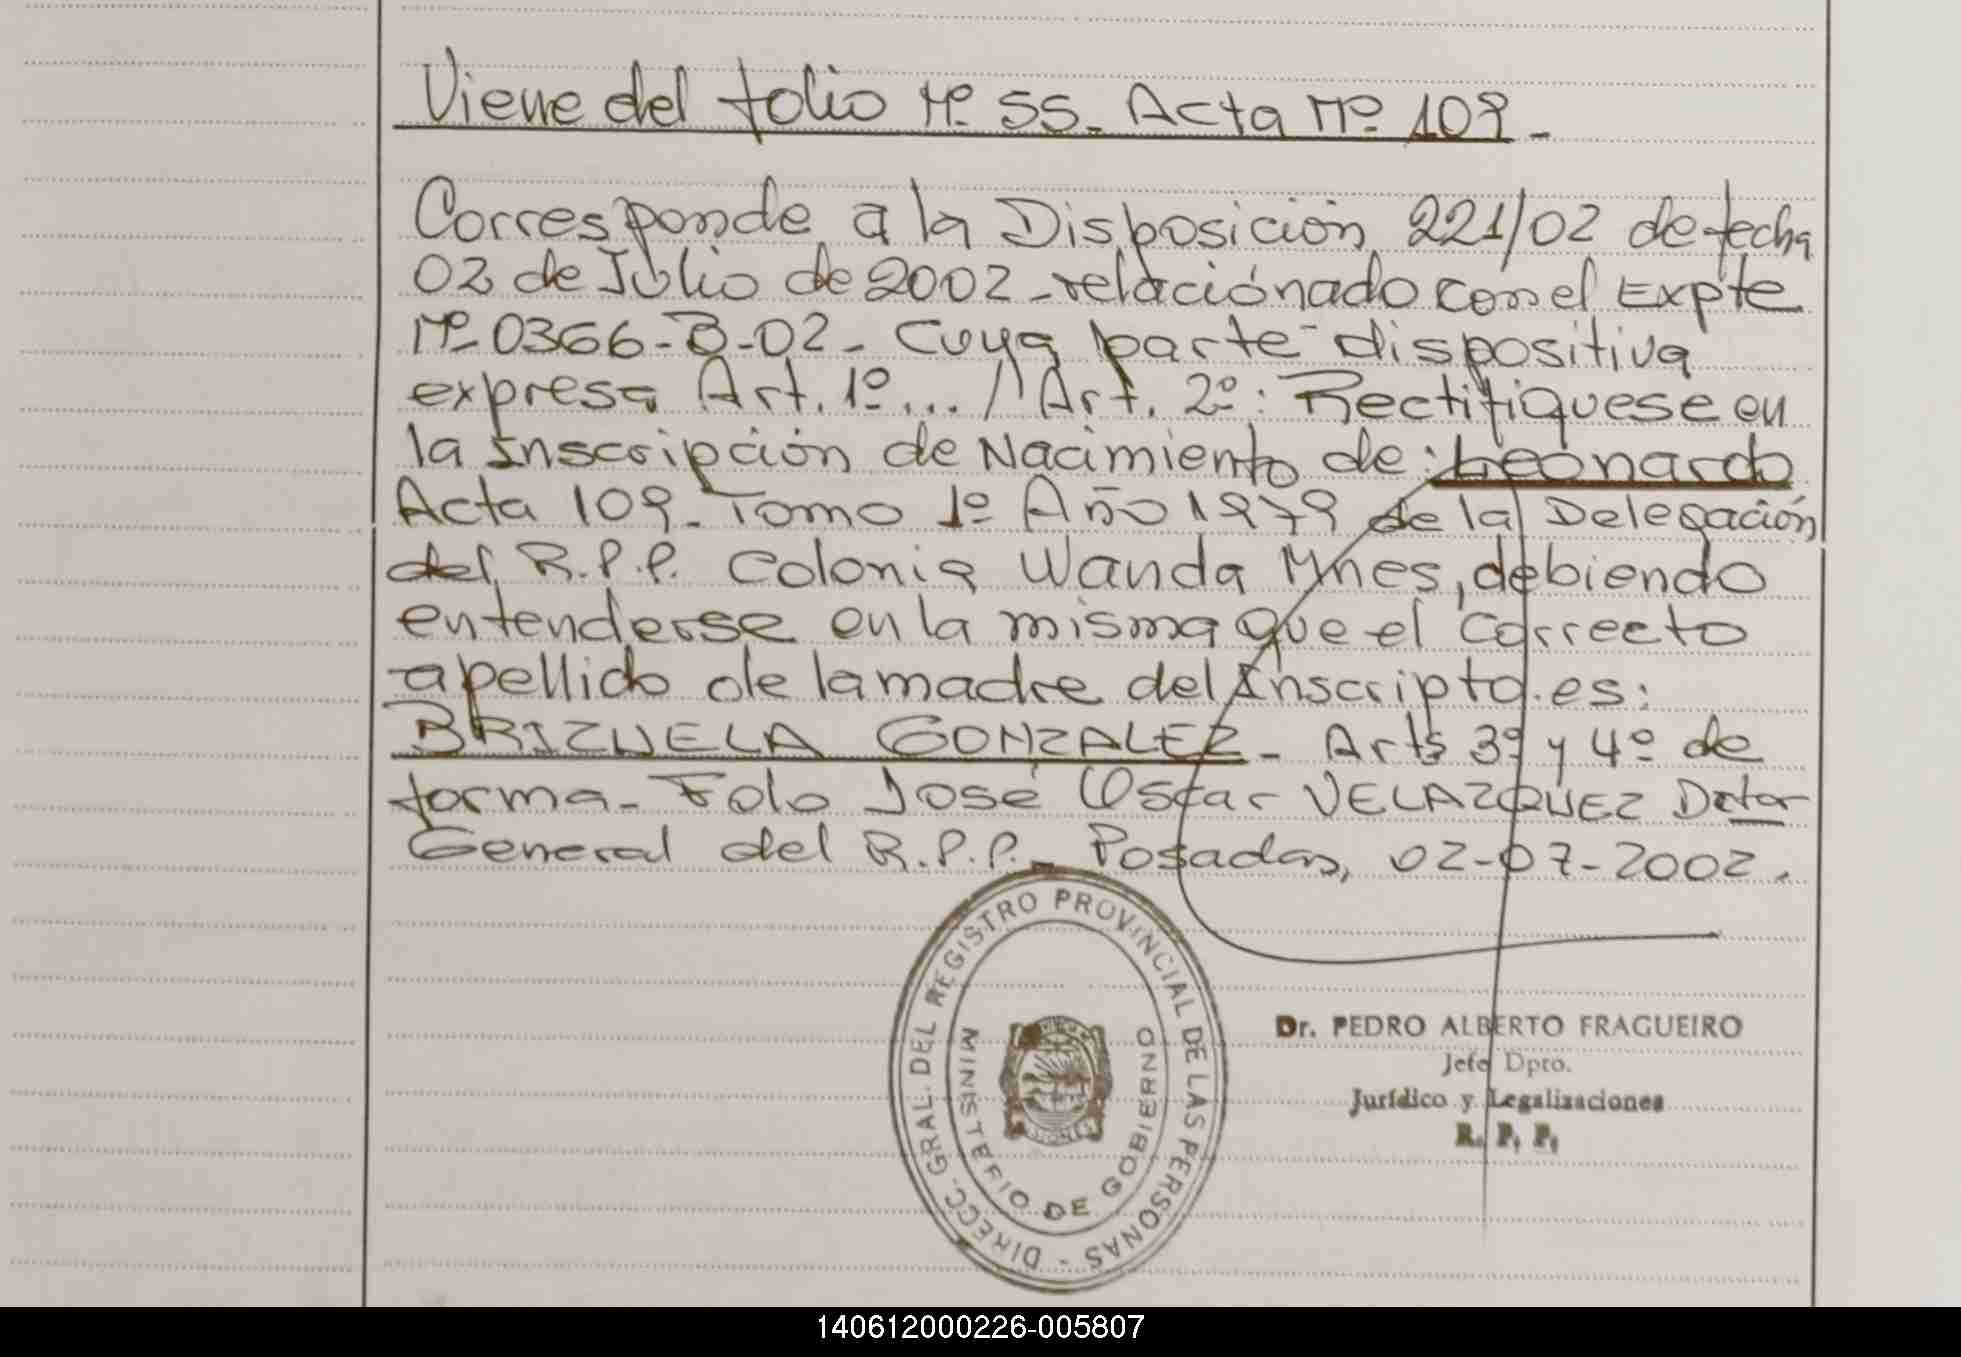 Viene del folio Nº 55. Acta Nº 109.-
Corresponde a la Disposición 221/02 de fecha
02 de Julio de 2002 - relaciónado con el Expte
Nº 0366-B-02- Cuya parte dispositiva
expresa Art. 1º... // Art. 2º: Rectifiquese en
la Inscripción de Nacimiento de: Leonardo
Acta 109. Tomo 1º Año 1979 de la Delegación
del R.P.P. Colonia Wanda Mnes, debiendo
entenderse en la misma que el correcto
apellido de la madre del Inscripto es:
BRIZUELA GONZALEZ - Arts 3º y 4º de
forma - Fdo José Oscar VELAZQUEZ Dctor
General del R.P.P. - Posadas, 02-07-2002.
DIRECC. GRAL. DEL REGISTRO PROVINCIAL DE LAS PERSONAS -
MINISTERIO DE GOBIERNO
MISIONES
Dr. PEDRO ALBERTO FRAGUEIRO
Jefe Dpto.
Jurídico y Legalizaciones
R. P. P.
140612000226-005807